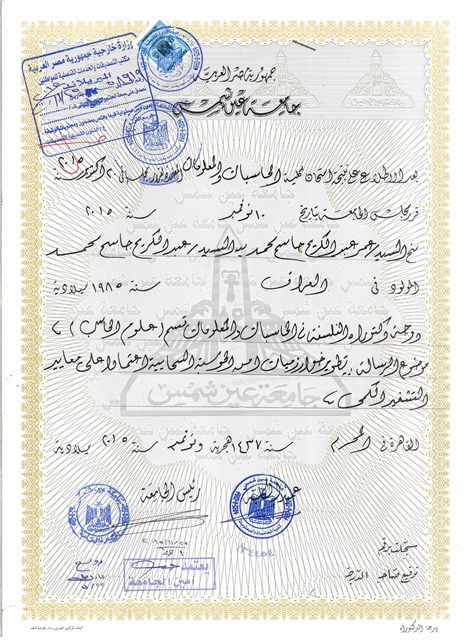 جمهورية مصر العربية
جامعة عين شمس
وزارة خارجية جمهورية مصر العربية
مكتب التصديقات
بعد الاطلاع على نتيجة امتحان كلية الحاسبات والمعلومات ٢٠ أكتوبر سنة ٢٠١٥
قرر مجلس الجامعة بتاريخ ١٠ نوفمبر سنة ٢٠١٥
منح السيد/ عمر عبد الكريم جاسم محمد بن السيد/ عبد الكريم جاسم محمد
المولود في العراق سنة ١٩٨٥ ميلادية
درجة دكتوراه الفلسفة في الحاسبات والمعلومات قسم (علوم الحاسب)
موضوع الرسالة: تطوير خوارزميات أمن الحوسبة السحابية اعتمادا على معايير
التشفير الكمى
القاهرة في المحرم سنة ١٤٣٧ هجرية ونوفمبر سنة ٢٠١٥ ميلادية
عميد الكلية
رئيس الجامعة
يعتمد
أمين الجامعة
سجلت برقم
توقيع صاحب الدرجة
درجة الدكتوراه